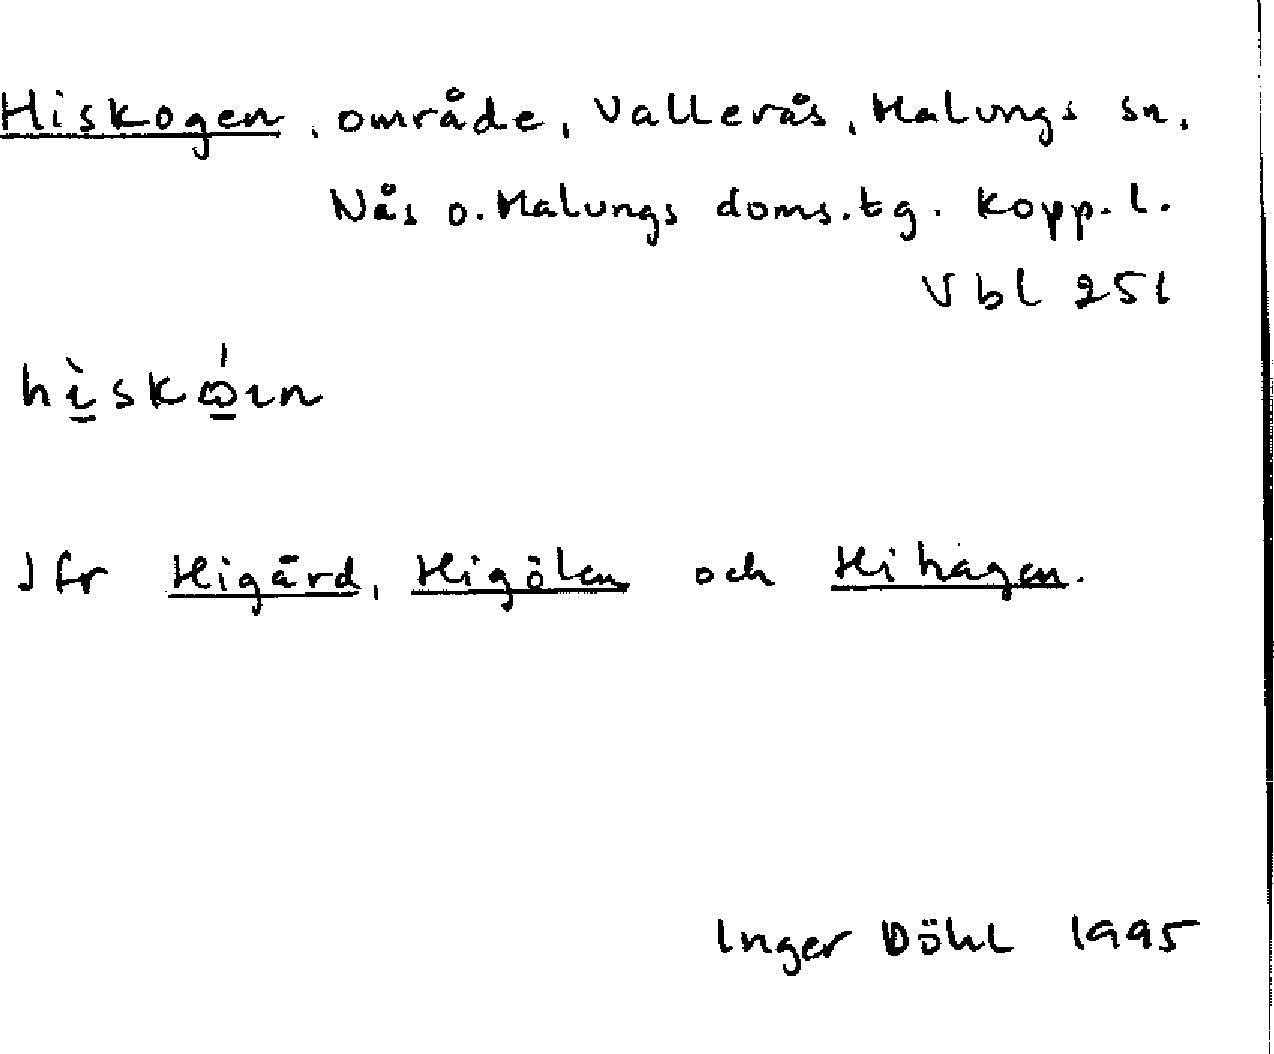 Hiskogen, område, Vallerås, Malungs sn.
Nås o. Malungs doms.tg. Kopp. l.
Vbl 251
Jfr Higärd, Higölen och Hihagen.
Inger Döhl 1995